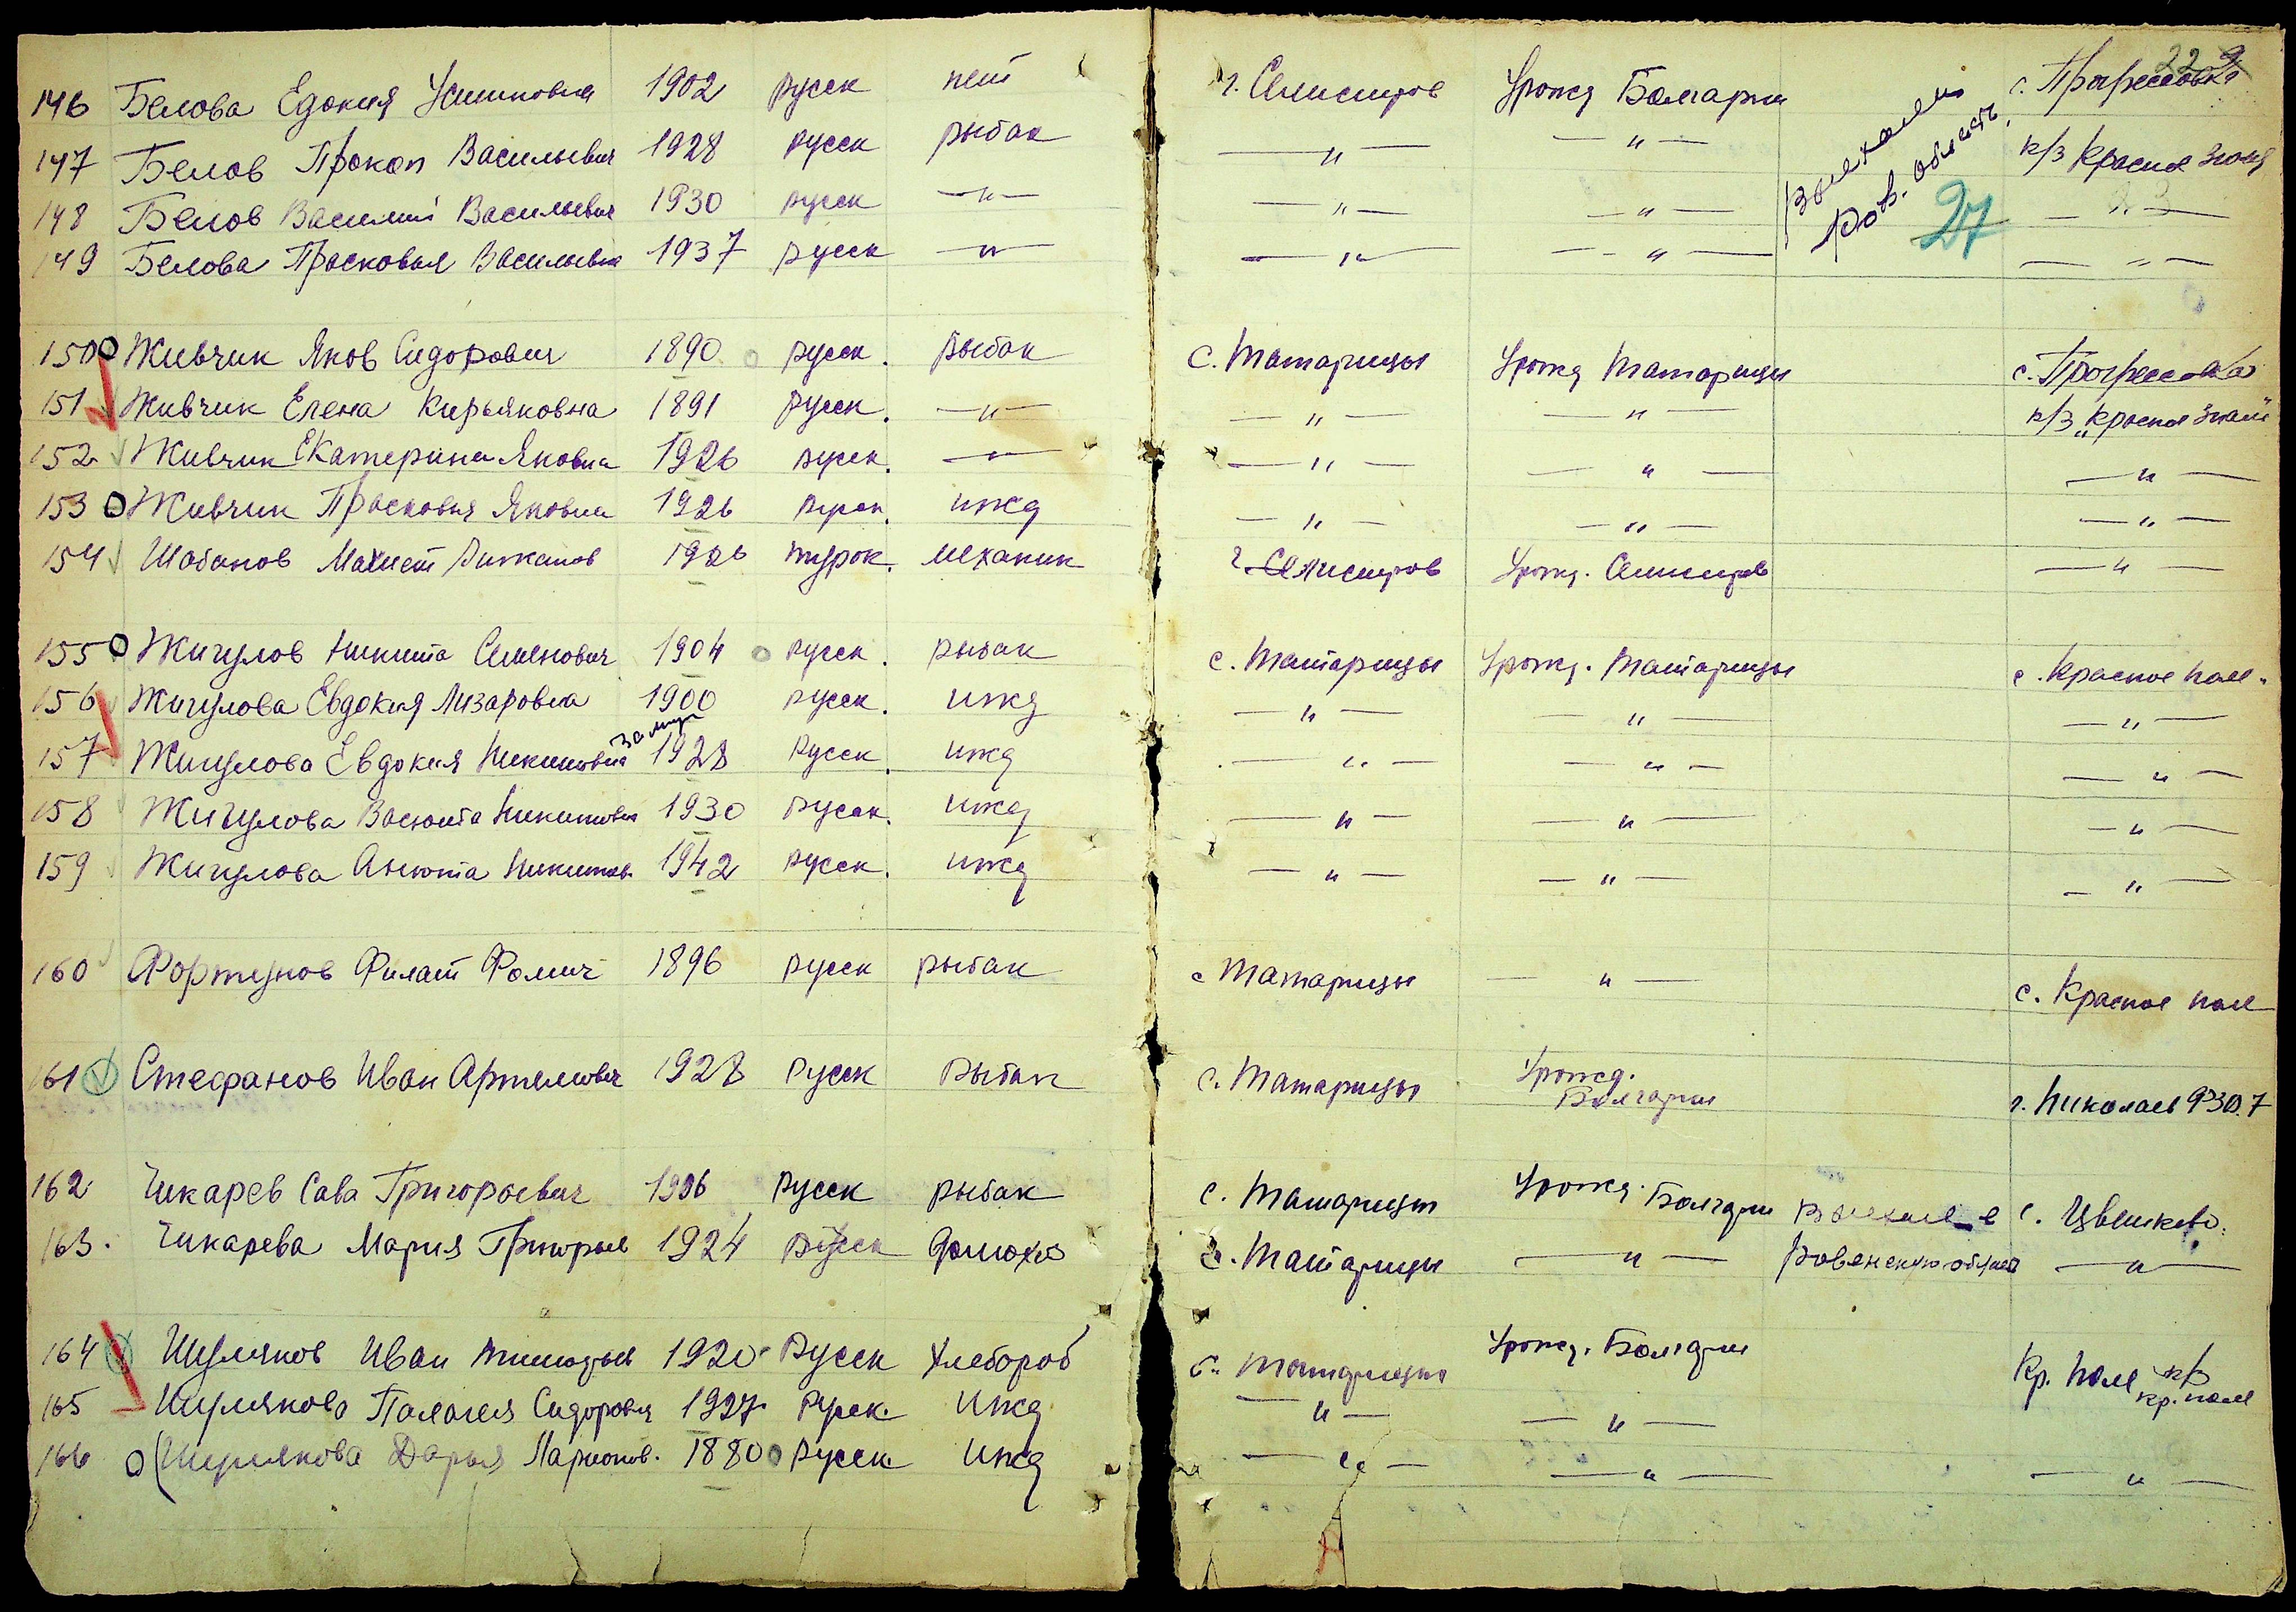 229
146 Белова Едокия 1902 русск нет г. Силистров Урожд Болгарии с. Прогрессовка
147 Белов Прокоп Васильевич 1928 русск рыбак — " — — " — Выехали к/з Красное знамя
148 Белов Василий Васильевич 1930 русск — " — — " — — " — Ров. область — " —
149 Белова Прасковья Васильевна 1937 русск — " — — " — — " — 27 — " —
150 Живчик Яков Сидорович 1890 русск. рыбак С. Татарицы Урожд Татарицы с. Прогрессовка
151 Живчик Елена Кирьяковна 1891 русск. — " — — " — — " — к/з "Красное знамя"
152 Живчик Екатерина Яковна 1926 русск. — " — — " — — " — — " —
153 Живчик Прасковья Яковна 1926 русск. ижд — " — — " — — " —
154 Шабанов Махмет 1926 турок. механик г. Силистров Урожд. Силистров — " —
155 Жигулов Никита Семенович 1904 русск. рыбак с. Татарицы Урожд. Татарицы с. Красное поле
156 Жигулова Евдокия Лизаровна 1900 русск. ижд — " — — " — — " —
замуж
157 Жигулова Евдокия Никитовна 1928 русск. ижд — " — — " — — " —
158 Жигулова Васюта Никитовна 1930 русск. ижд — " — — " — — " —
159 Жигулова Анюта Никитов. 1942 русск. ижд — " — — " — — " —
160 Фортунов Филат Фомич 1896 русск рыбак с Татарицы — " — с. Красное поле
161 Стефанов Иван Артемович 1928 русск рыбак с. Татарицы Урожд. Болгарии г. Николаев
162 Чикарев Сава Григорьевич 1906 русск рыбак с. Татарицы Урожд. Болгарии Выехали в с. Цвешково.
163. Чикарева Мария Григорьев 1924 русск домохоз с. Татарицы — " — Ровенскую област — " —
164 Шуляков Иван Тимофеев 1920 русск хлебороб с. Татарицы Урожд. Болгарии Кр. Поле к/з
165 Шулякова Палагея Сидоровна 1927 русск. ижд — " — — " — кр. поле
166 Шулякова Дарья Ларионов. 1880 русск. ижд — " — — " — — " —